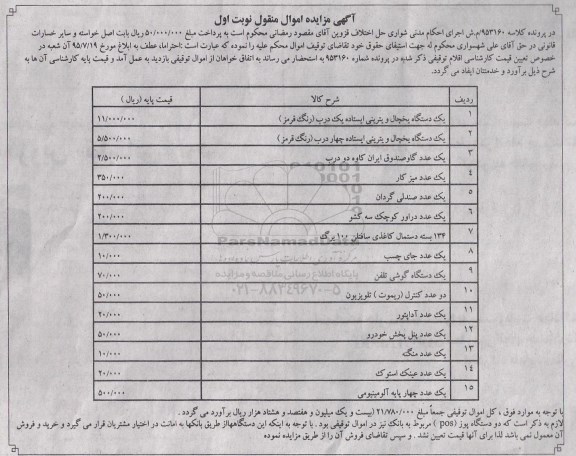 آگهی مزایده اموال منقول نوبت اول
در پرونده کلاسه ۹۵۳۱۶۰/م.ش اجرای احکام مدنی شورای حل اختلاف قزوین آقای مقصود رمضانی محکوم است به پرداخت مبلغ ۵۰/۰۰۰/۰۰۰ ریال بابت اصل خواسته و سایر خسارات
قانونی در حق آقای علی شهسواری محکوم له جهت استیفای حقوق خود تقاضای توقیف اموال محکم علیه را نموده که عبارت است :احتراما، عطف به ابلاغ مورخ ۹۵/۷/۱۹ آن شعبه در
خصوص تعیین قیمت کارشناسی اقلام توقیفی ذکر شده در پرونده شماره ۹۵۳۱۶۰ به استحضار می رساند به اتفاق خواهان از اموال توقیفی بازدید به عمل آمد و قیمت پایه کارشناسی آن ها به
شرح ذیل برآورد و خدمتتان ایفاد می گردد.
ردیف شرح کالا قیمت پایه (ریال )
۱ یک دستگاه یخچال ویترینی ایستاده یک درب (رنگ قرمز) ۱۱/۰۰۰/۰۰۰
۲ یک دستگاه یخچال ویترینی ایستاده چهار درب (رنگ قرمز) ۵/۵۰۰/۰۰۰
۳ یک عدد گاوصندوق ایران کاوه دو درب ۲/۵۰۰/۰۰۰
۴ یک عدد میز کار ۳۵۰/۰۰۰
۵ یک عدد صندلی گردان ۲۰۰/۰۰۰
۶ یک عدد دراور کوچک سه کشو ۲۰۰/۰۰۰
۷ ۱۳۴ بسته دستمال کاغذی سافتلن ۱۰۰ برگ ۱/۳۰۰/۰۰۰
۸ یک عدد جای چسب ۱۰/۰۰۰
۹ یک دستگاه گوشی تلفن ۷۰/۰۰۰
۱۰ دو عدد کنترل (ریموت ) تلویزیون ۵۰/۰۰۰
۱۱ یک عدد آداپتور ۲۰/۰۰۰
۱۲ یک عدد پنل پخش خودرو ۵۰/۰۰۰
۱۳ یک عدد منگنه ۱۰/۰۰۰
۱۴ یک عدد عینک استوک ۲۰/۰۰۰
۱۵ یک عدد چهار پایه آلومینیومی ۵۰۰/۰۰۰
با توجه به موارد فوق ، کل اموال توقیفی جمعاً مبلغ ۲۱/۷۸۰/۰۰۰ (بیست و یک میلیون و هفتصد و هشتاد هزار ریال برآورد می گردد .
لازم به ذکر است که دو دستگاه پوز (pos ) مربوط به بانک نیز در اموال توقیفی بود . با توجه به اینکه این دستگاهها از طریق بانکها به امانت در اختیار مشتریان قرار می گیرد و خرید و فروش
آن معمول نمی باشد لذا برای آنها قیمت تعیین نشد . و سپس تقاضای فروش آن را از طریق مزایده نموده
ParsNamadData
پایگاه اطلاع رسانی مناقصه و مزایده
۰۲۱-۸۸۳۴۹۶۷۰-۵